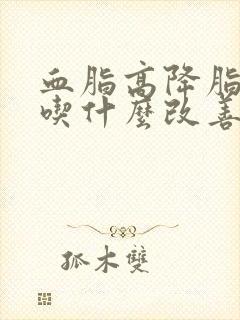 血脂高降脂
喫什麼改善
孤木雙